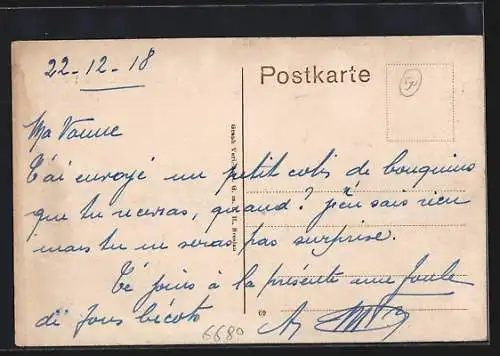 22-12-18
Postkarte
Ma Vonne
T'ai envoyé un petit colis de bouquins
que tu recevras, quand ? j'en sais rien
mais tu ne seras pas surprise.
Te joins à la présente une foule
de bécots
69
6680